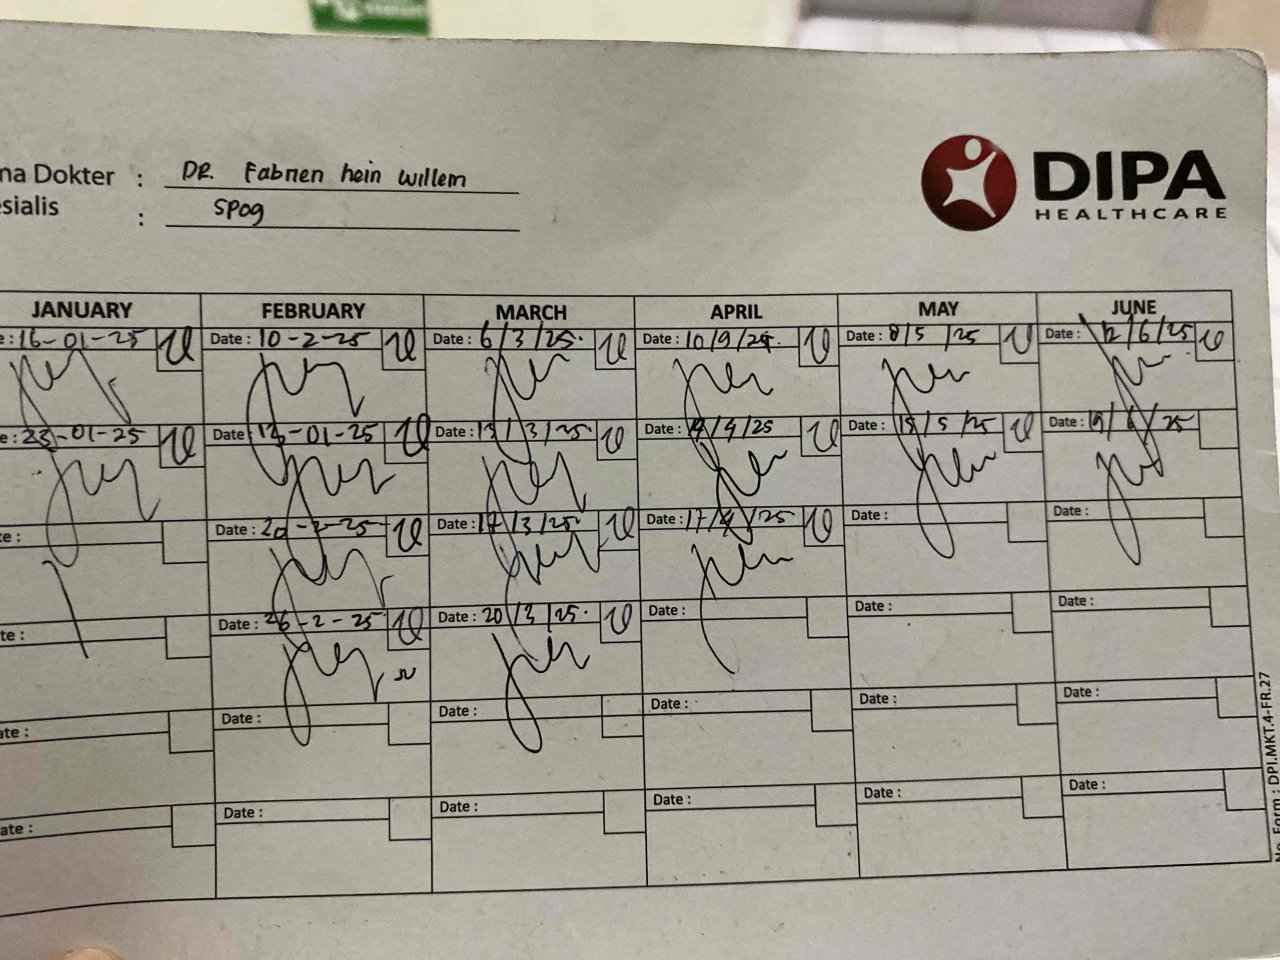 na Dokter : DR. Fabrien hein willem
esialis : SPOG
DIPA
HEALTHCARE
JANUARY FEBRUARY MARCH APRIL MAY JUNE
e : 16-01-25 Date : 10-2-25 Date : 6/3/25. Date : 10/9/24. Date : 8/5/25 Date : 12/6/25
e : 23-01-25 Date : 13-01-25 Date : 13/3/25. Date : 14/4/25 Date : 15/5/25 Date : 19/6/25
te : Date : 20-2-25 Date : 17/3/25 Date : 17/4/25 Date : Date :
te : Date : 26-2-25 Date : 20/3/25. Date : Date : Date :
ate : Date : Date : Date : Date : Date :
ate : Date : Date : Date : Date : Date :
No. Form : DPI.MKT.4-FR.27